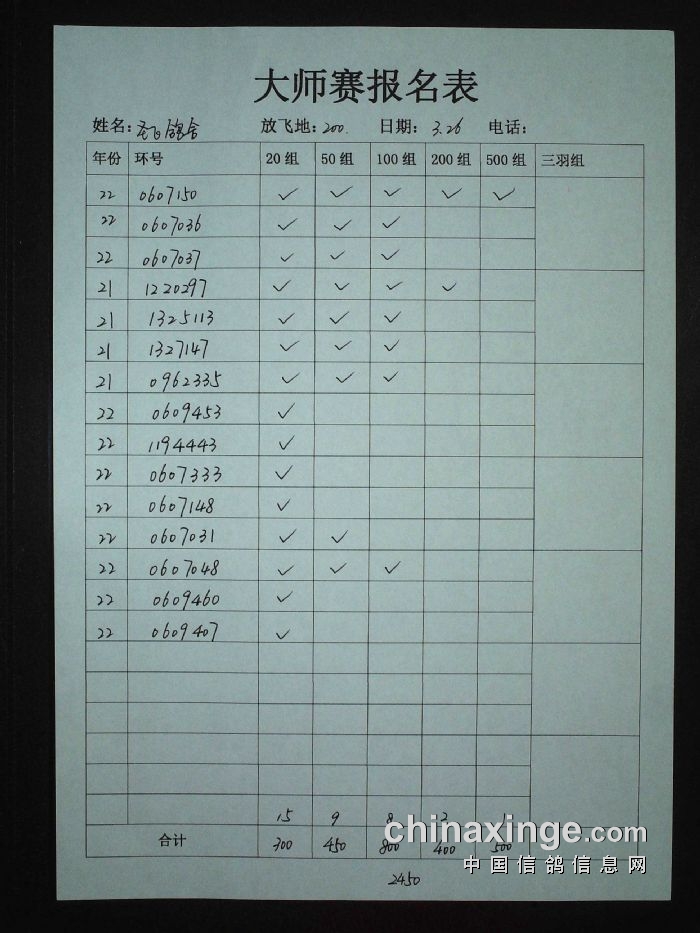 大师赛报名表
姓名: 飞鸽舍 放飞地: 200. 日期: 3.26 电话:
年份 环号 20 组 50 组 100 组 200 组 500 组 三羽组
22 0607150 ✓ ✓ ✓ ✓ ✓
22 0607036 ✓ ✓ ✓
22 0607037 ✓ ✓ ✓
21 1220297 ✓ ✓ ✓ ✓
21 1325113 ✓ ✓ ✓
21 1327147 ✓ ✓ ✓
21 0962335 ✓ ✓ ✓
22 0609453 ✓
22 1194443 ✓
22 0607333 ✓
22 0607148 ✓
22 0607031 ✓ ✓
22 0607048 ✓ ✓ ✓
22 0609460 ✓
22 0609407 ✓
15 9 8 2 1
合计 300 450 800 400 500
2450
chinaxinge.com
中国信鸽信息网